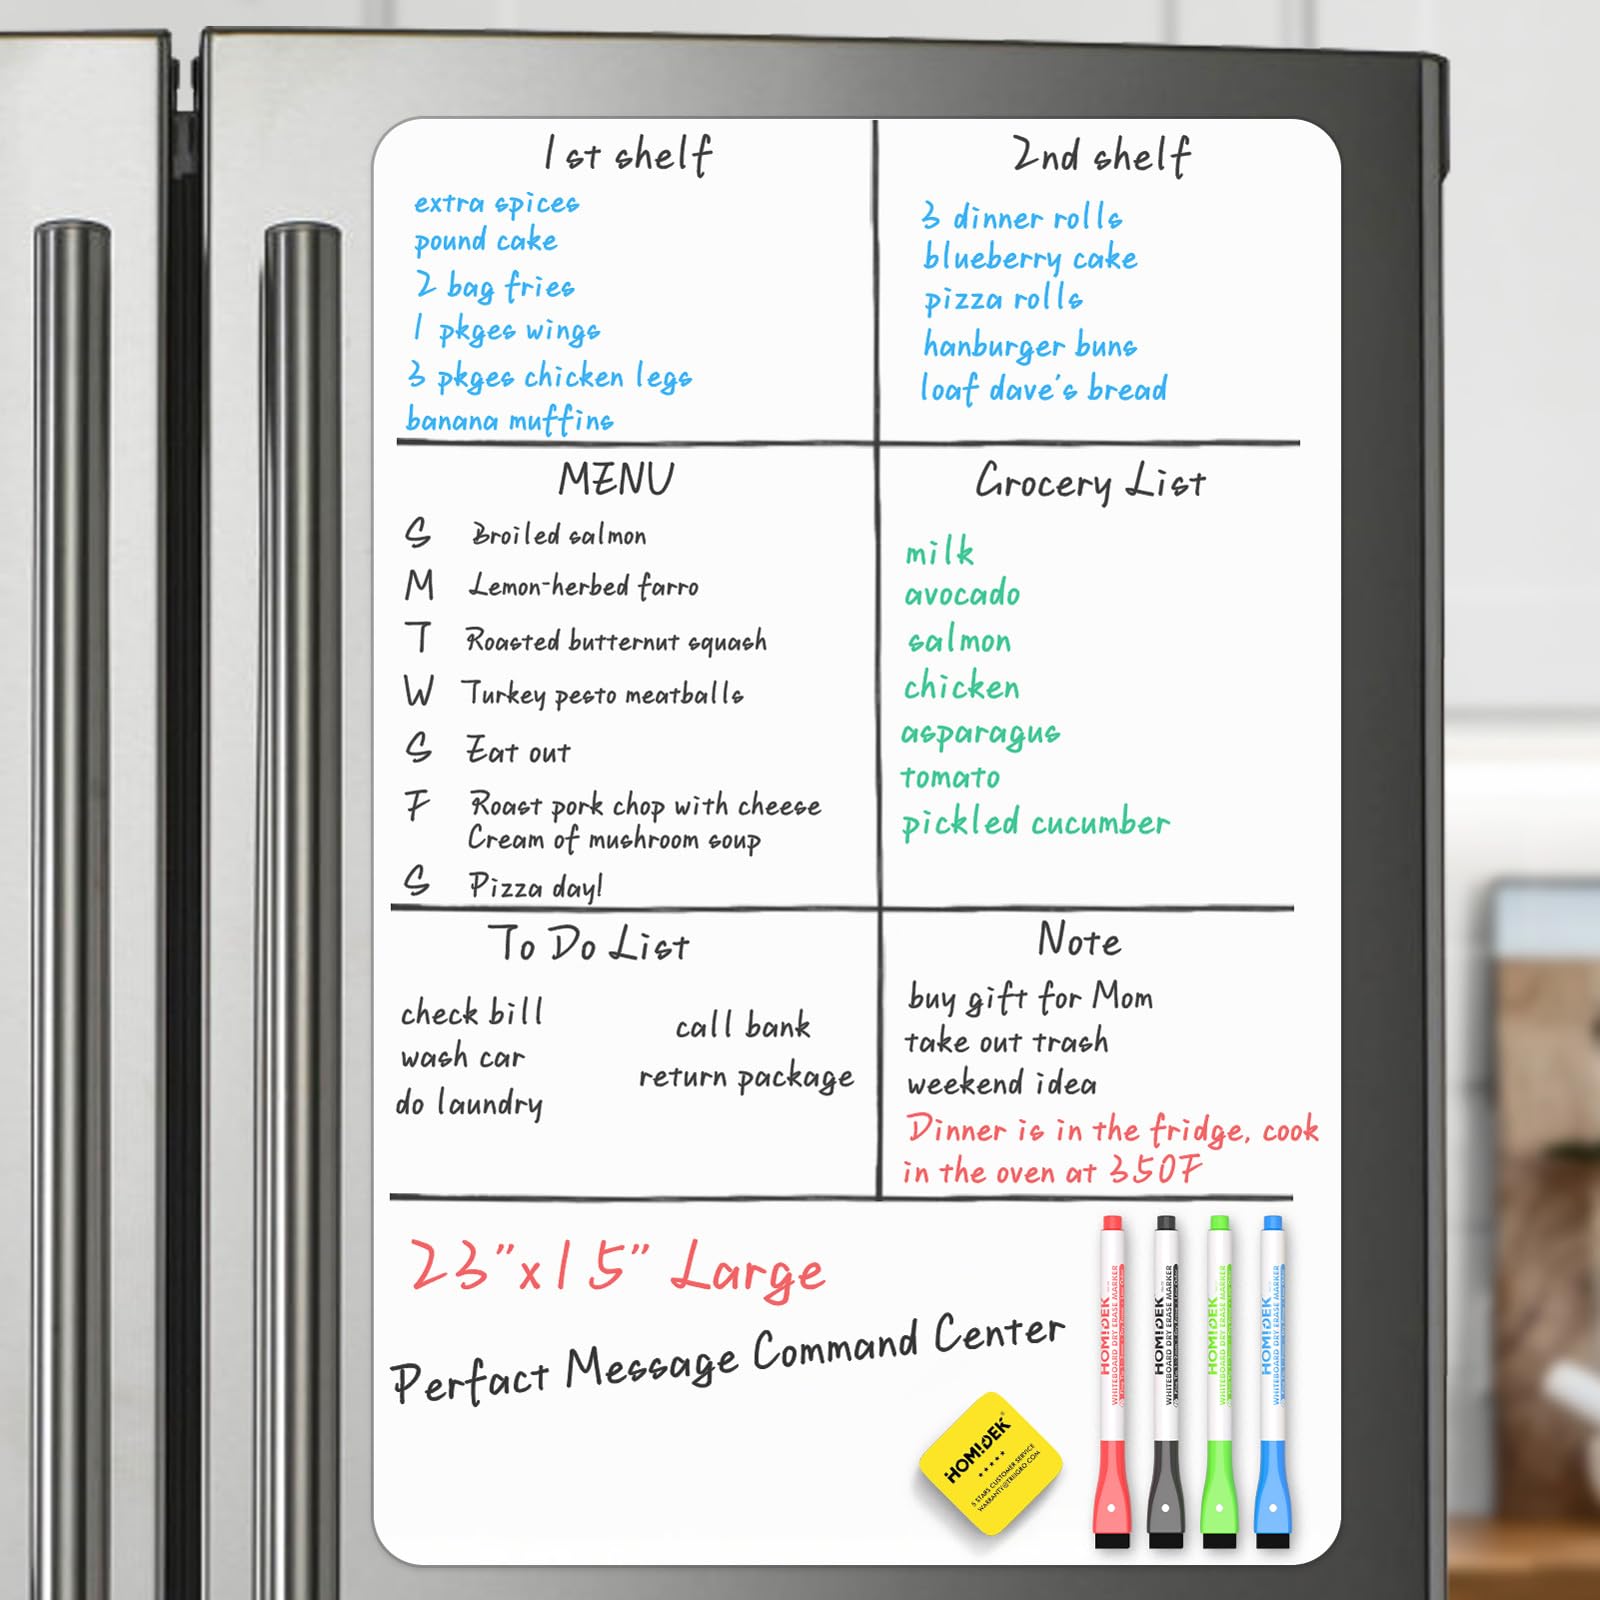 1st shelf
extra spices
pound cake
2 bag fries
1 pkges wings
3 pkges chicken legs
banana muffins
2nd shelf
3 dinner rolls
blueberry cake
pizza rolls
hanburger buns
loaf dave's bread
MENU
S Broiled salmon
M Lemon-herbed farro
T Roasted butternut squash
W Turkey pesto meatballs
S Eat out
F Roast pork chop with cheese
Cream of mushroom soup
S Pizza day!
Grocery List
milk
avocado
salmon
chicken
asparagus
tomato
pickled cucumber
To Do List
check bill
wash car
do laundry
call bank
return package
Note
buy gift for Mom
take out trash
weekend idea
Dinner is in the fridge, cook
in the oven at 350F
23"x15" Large
Perfact Message Command Center
HOM!DEK®
5 STARS CUSTOMER SERVICE
HOM!DEK
WHITEBOARD DRY ERASE MARKER
HOM!DEK
WHITEBOARD DRY ERASE MARKER
HOM!DEK
WHITEBOARD DRY ERASE MARKER
HOM!DEK
WHITEBOARD DRY ERASE MARKER